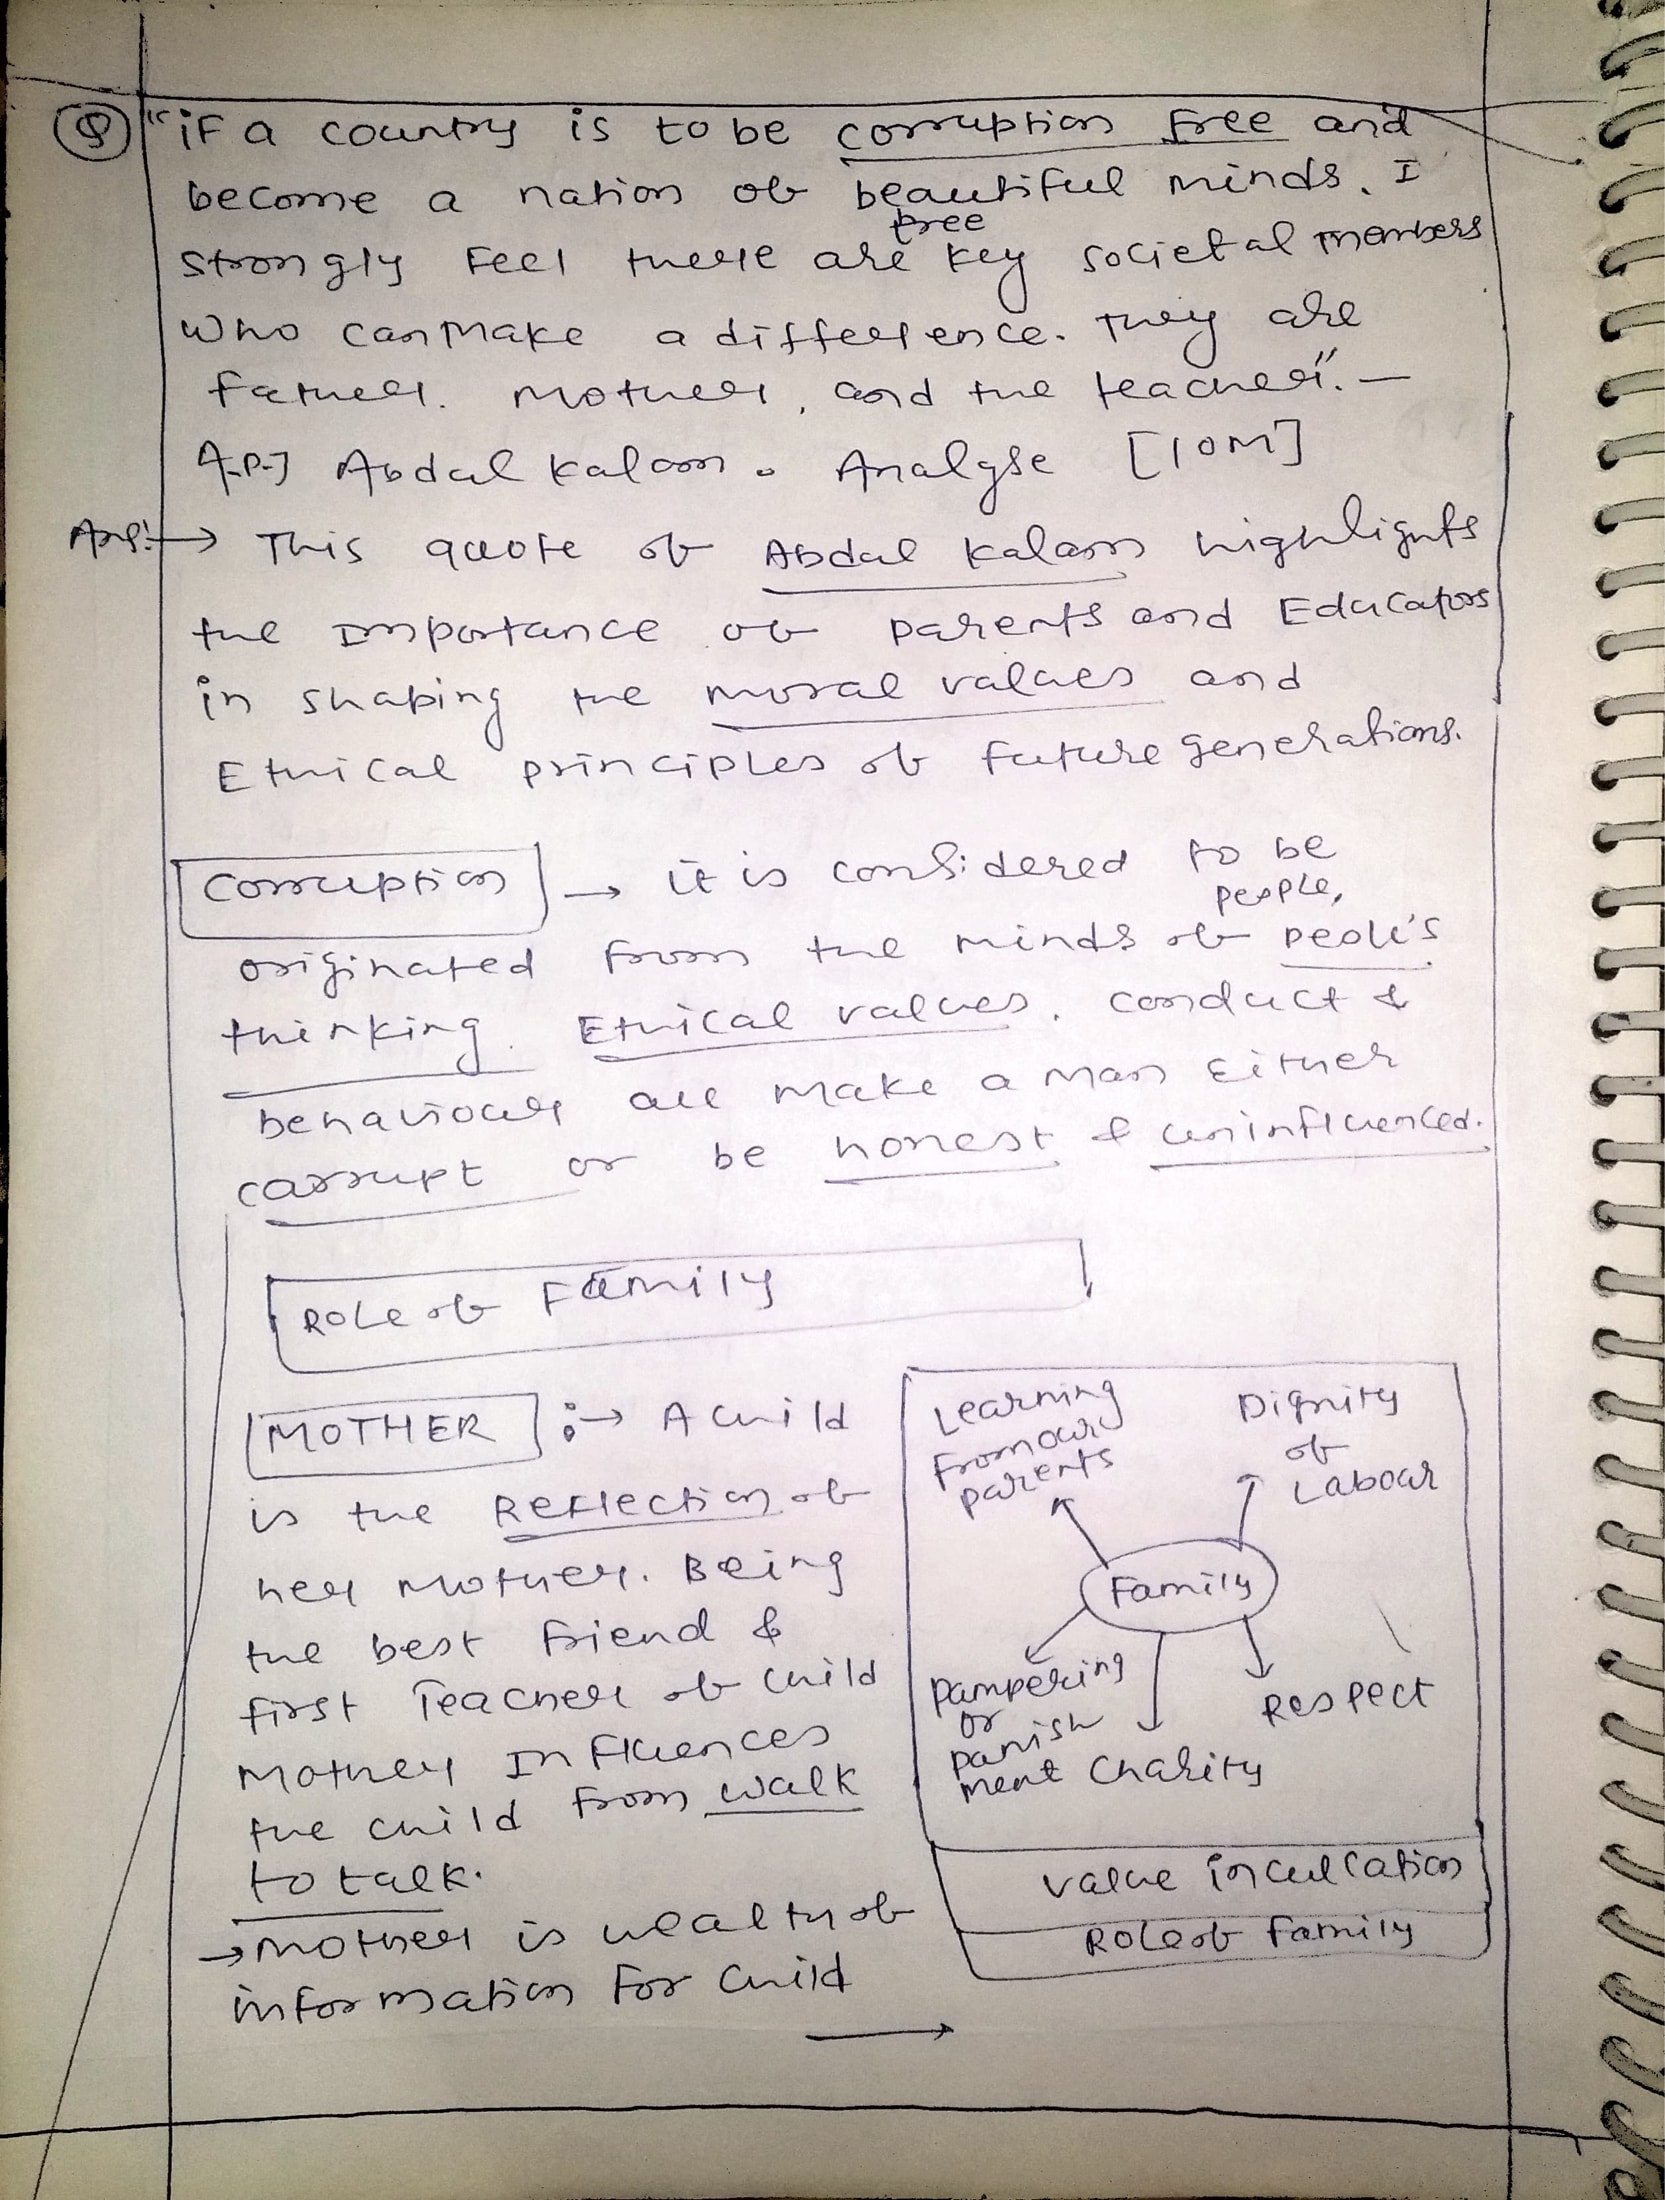 Q "if a country is to be corruption free and
become a nation of beautiful minds, I
tree
strongly feel there are key societal members
who can make a difference. They are
father, mother, and the teacher". —
A.P.J Abdul kalam. Analyse [10M]
Ans:→ This quote of Abdul kalam highlights
the importance of parents and Educators
in shaping the moral values and
Ethical principles of future generations.
Corruption → it is considered to be
people,
originated from the minds of peole's
thinking. Ethical values, conduct &
behaviour all make a man Either
corrupt or be honest & uninfluenced.
ROLE of Family
MOTHER :→ A child
is the Reflection of
her mother. Being
the best friend &
first Teacher of child
Mother Influences
the child from walk
to talk.
→ mother is wealth of
information for child
Learning
from our
parents
Dignity
of
Labour
Family
Pampering
or
punish
ment
Charity
Respect
value inculcation
ROLE of family